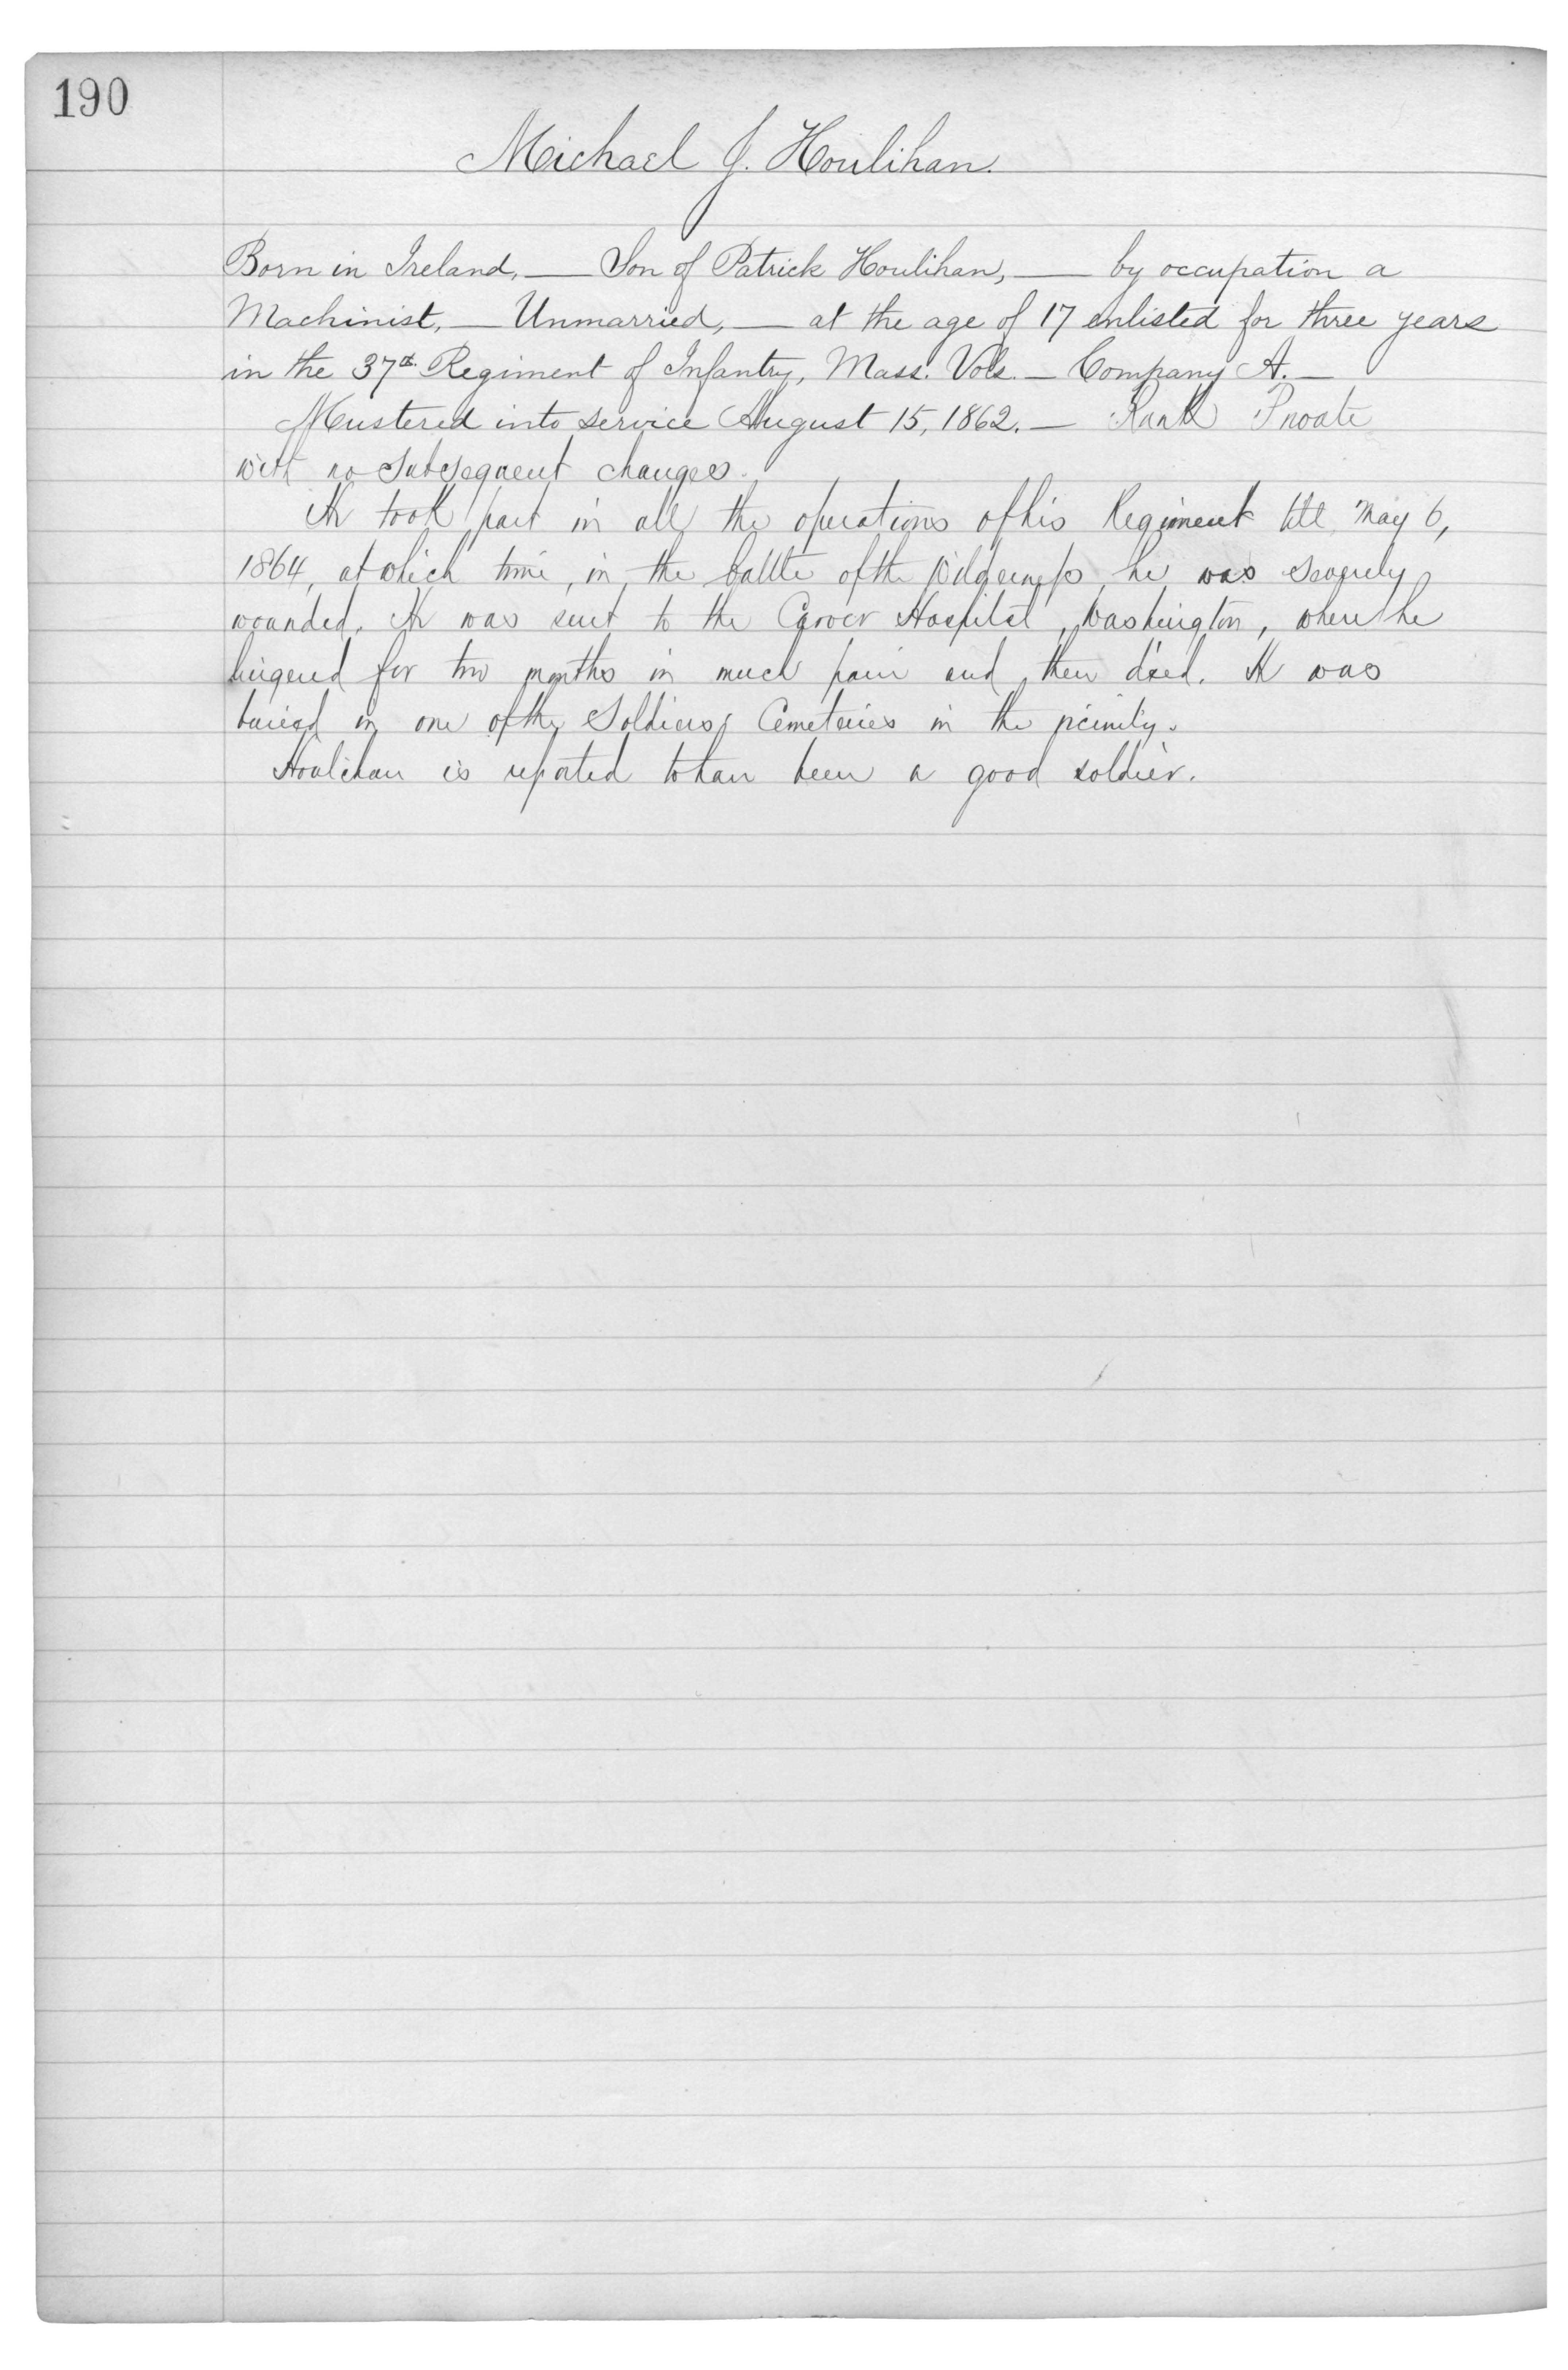 190
Michael J. Houlihan.
Born in Ireland, — Son of Patrick Houlihan, — by occupation a
Machinist, — Unmarried, — at the age of 17 enlisted for three years
in the 37th Regiment of Infantry, Mass. Vols. — Company A. —
Mustered into service August 15, 1862. — Rank Private
with no subsequent changes.
He took part in all the operations of his Regiment till May 6,
1864, at which time, in the battle of the Wilderness, he was severely
wounded. He was sent to the Carver Hospital, Washington, where he
lingered for two months in much pain and then died. He was
buried in one of the Soldiers' Cemeteries in the vicinity.
Houlihan is reported to have been a good soldier.